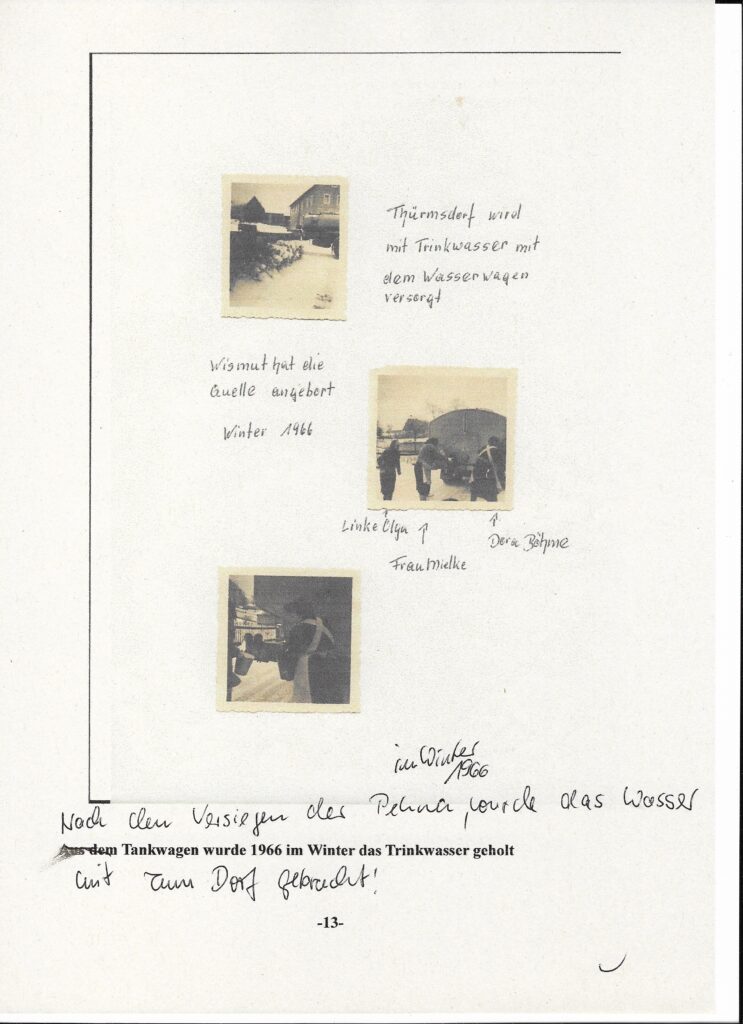 Thürmsdorf wird
mit Trinkwasser mit
dem Wasserwagen
versorgt
Wismut hat die
Quelle angebort
Winter 1966
Linke Olga
Frau Mielke
Dora Böhme
im Winter
1966
Nach den Versiegen der Pehna, wurde das Wasser
Aus dem Tankwagen wurde 1966 im Winter das Trinkwasser geholt
mit zum Dorf gebracht!
-13-